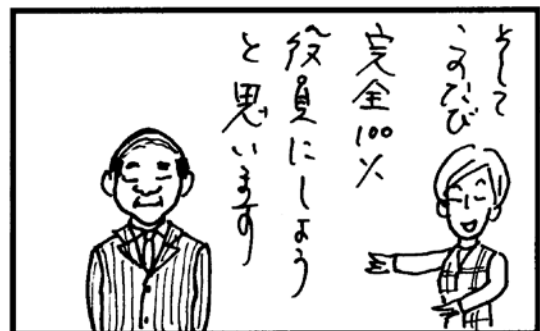 そして
このたび
完全100%
役員にしよう
と思います